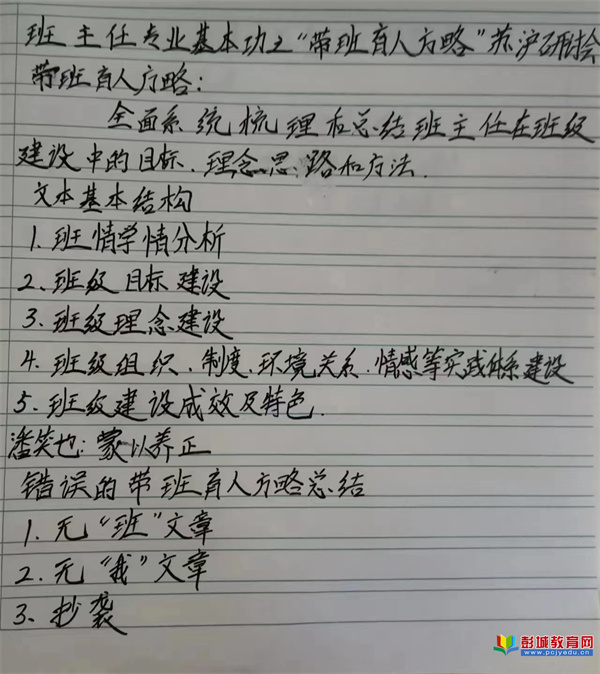 班主任专业基本功之“带班育人方略”苏沪研讨会
带班育人方略：
全面系统梳理和总结班主任在班级
建设中的目标、理念思路和方法.
文本基本结构
1. 班情学情分析
2. 班级目标建设
3. 班级理念建设
4. 班级组织、制度、环境关系、情感等实践体系建设
5. 班级建设成效及特色.
潘笑也：蒙以养正
错误的带班育人方略总结
1. 无“班”文章
2. 无“我”文章
3、抄袭
彭城教育网
www.pcjyedu.cn